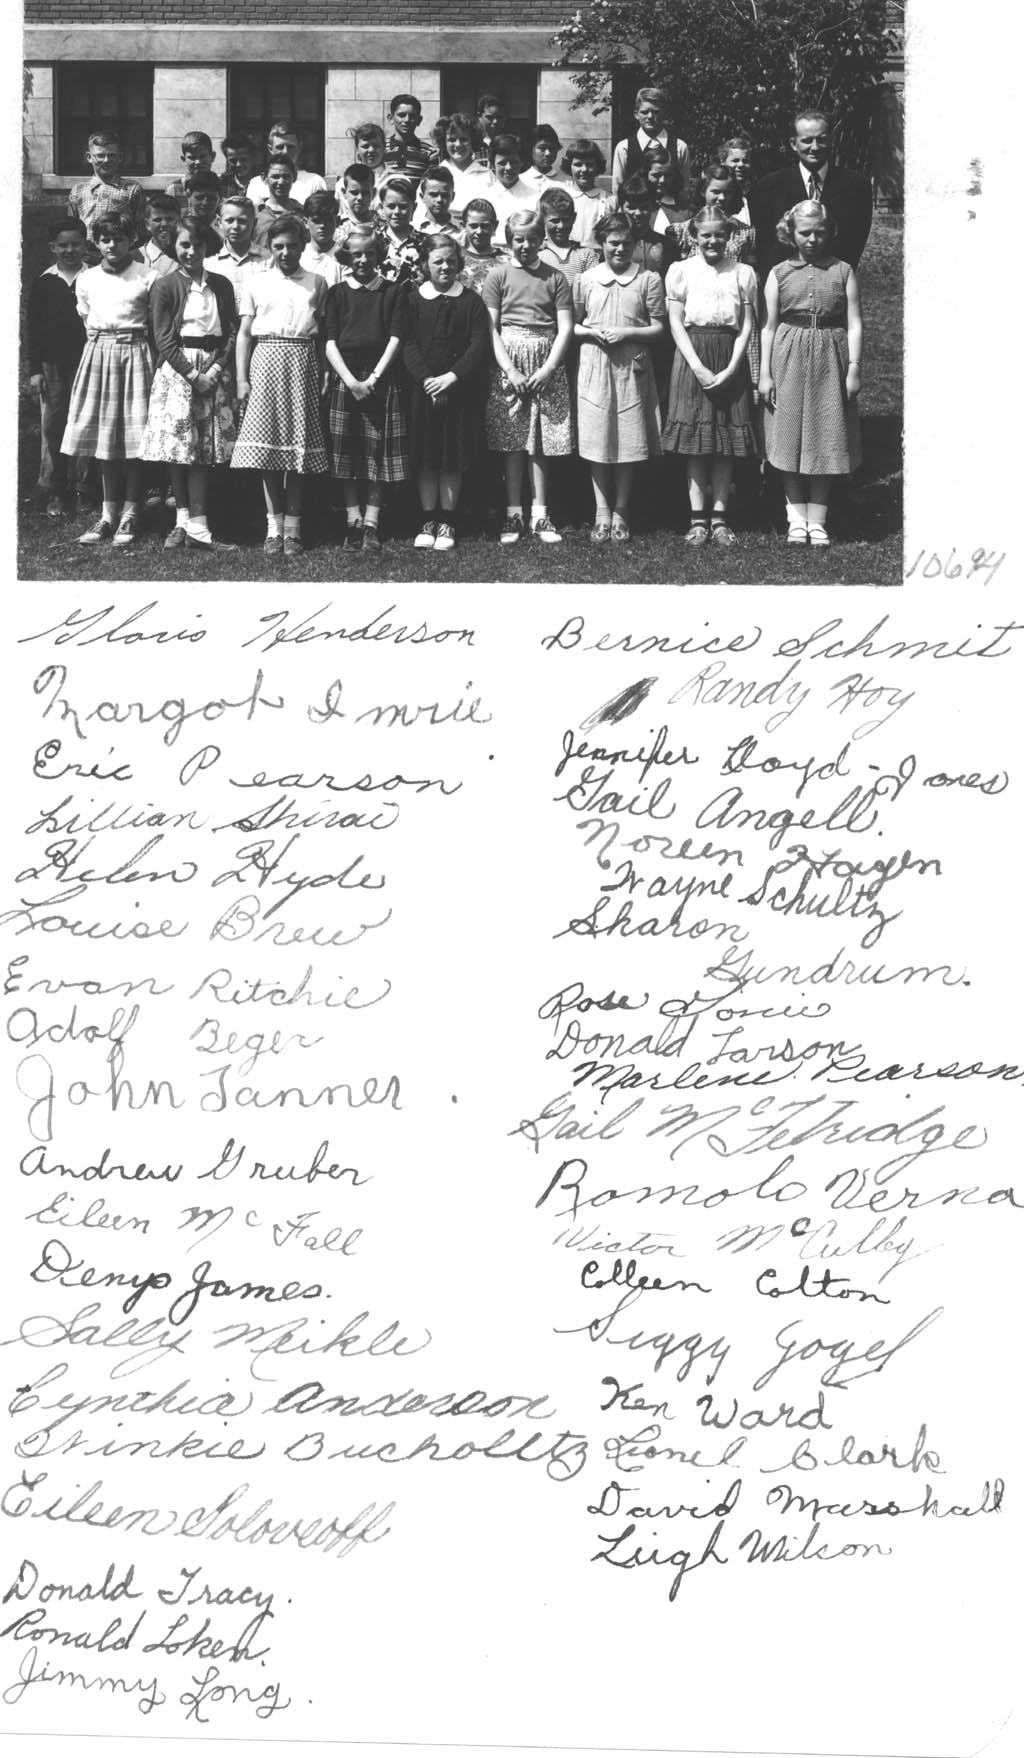 10694
Gloria Henderson
Margot Imrie
Eric Pearson
Lillian Shirai
Helen Hyde
Louise Brew
Evan Ritchie
Adolf Beger
John Tanner.
Andrew Gruber
Eileen McFall
Denys James.
Sally Meikle
Cynthia Anderson
Winkie Bucholltz
Eileen Soloveoff
Donald Tracy.
Ronald Loken.
Jimmy Long.
Bernice Schmit
Randy Hoy
Jennifer Lloyd-Jones
Gail Angell.
Noreen Hagen
Wayne Schultz
Sharon
Gundrum.
Rose
Donald Larson
Marlene Pearson.
Gail McFetridge
Romolo Verna
Victor McCulley
Colleen Colton
Siggy Gogel
Ken Ward
Lionel Clark
David Marshall
Leigh Wilson